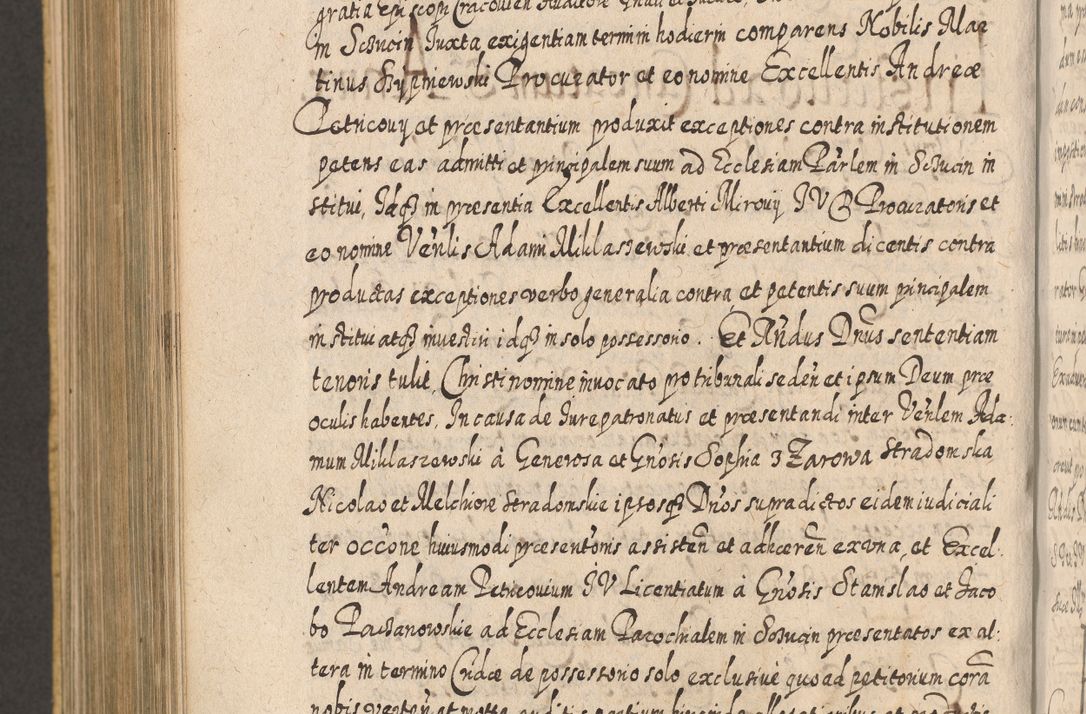 gratia Episcopi Cracovien Auditore
in Sczucin Juxta exigentiam termini hodierni comparens Nobilis Mar
tinus Skypniewski Procurator et eo nomine Excellentis Andreæ
Petricovij et præsentantium produxit exceptiones contra institutionem
petens eas admitti et principalem suum ad Ecclesiam Parlem in Sczucin in
stitui, Idq3 in præsentia Excellentis Alberti Mirovij I V D Procuratoris et
eo nomine Venlis Adami Miklaszewski et præsentantium dicentis contra
productas exceptiones verbo generalia contra et petentis suum principalem
institui atq3 investiri idq3 in solo possessorio. Et Rndus Dnus sententiam
tenoris tulit, Christi nomine invocato pro tribunali seden et ipsum Deum præ
oculis habentes, In causa de Jurepatronatus et præsentandi inter Venlem Ada:
mum Miklaszewski à Generosa et Gnosis Sophia 3 Zarowa Stradomska
Nicolao et Melchiore Stradomskie ipsosq3 Dnos supradictos eidem iudiciali
ter occone huiusmodi præsentonis assisten et adhæren ex vna, et Excel:
lentem Andream Petricovium I V Licentiatum à Gnosis Stanislao et Jaco
bo Paczanowskie ad Ecclesiam Parochialem in Sczucin præsentatos ex al:
tera in termino Cridæ de possessorio solo exclusive quoad petitorium corã
nobis verten et motta auditis partium